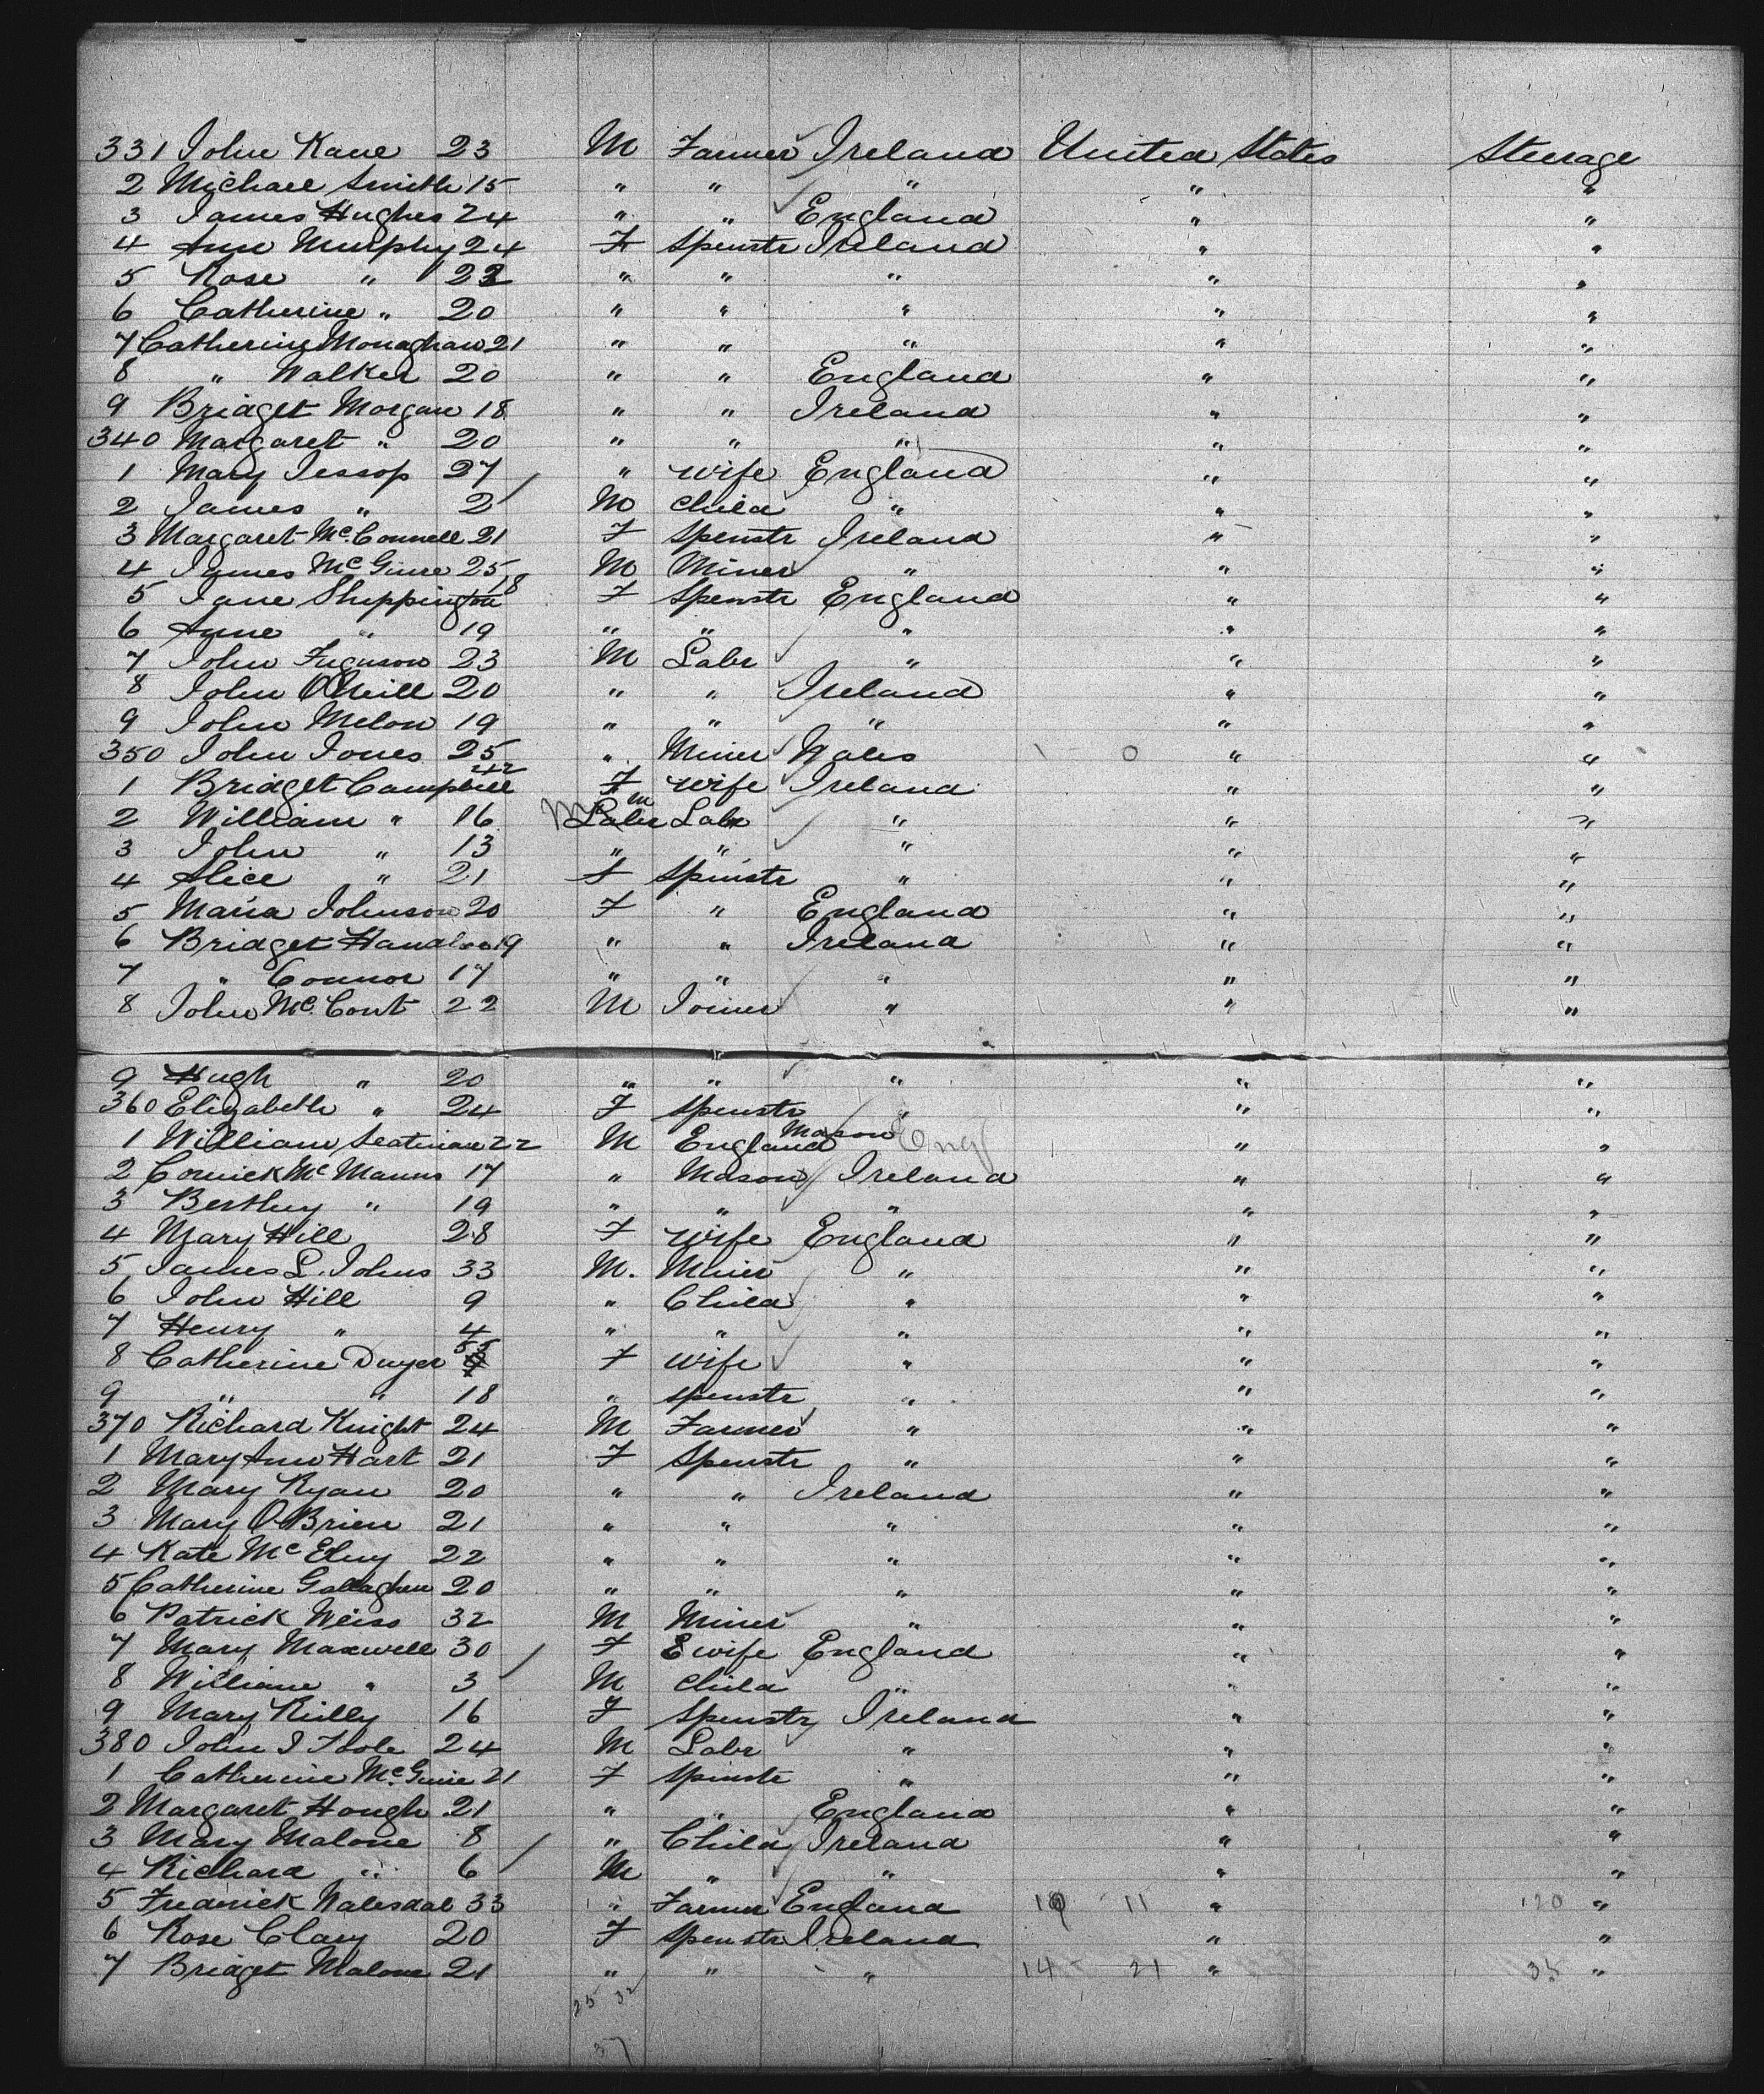 331 John Kane 23 M Farmer Ireland United States Steerage
2 Michael Smith 15 " " " " "
3 James Hughes 24 " " England " "
4 Ann Murphy 24 F Spenstr Ireland " "
5 Rose " 22 " " " " "
6 Catherine " 20 " " " " "
7 Catherine Monaghan 21 " " " " "
8 " Walker 20 " " England " "
9 Bridget Morgan 18 " " Ireland " "
340 Margaret " 20 " " " " "
1 Mary Jessop 27 " wife England " "
2 James " 2 M Child " " "
3 Margaret McConnell 21 F Spenstr Ireland " "
4 James McGuire 25 M Miner " " "
5 Jane Sheppington 18 F Spenstr England " "
6 Anne " 19 " " " " "
7 John Ferguson 23 M Labr " " "
8 John O'Neill 20 " " Ireland " "
9 John Melon 19 " " " " "
350 John Jones 25 " Miner Wales " "
1 Bridget Campbell 42 F wife Ireland " "
2 William " 16 Labr M Labr " " "
3 John " 13 " " " " "
4 Alice " 21 F Spinstr " " "
5 Maria Johnson 20 F " England " "
6 Bridget 19 " " Ireland " "
7 " Connor 17 " " " " "
8 John McCont 22 M Joiner " " "
9 Hugh " 20 " " " " "
360 Elizabeth " 24 F Spenstr " " "
1 William 22 M England Mason Engl " "
2 McManus 17 " Mason Ireland " "
3 " 19 " " " " "
4 Mary Hill 28 F wife England " "
5 James L. Johns 33 M. Miner " " "
6 John Hill 9 " Child " " "
7 Henry " 4 " " " " "
8 Catherine Dwyer 55 F wife " " "
9 " " 18 " Spenstr " " "
370 Richard Knight 24 M Farmer " " "
1 Mary Ann Hart 21 F Spenstr " " "
2 Mary Ryan 20 " " Ireland " "
3 Mary O'Brien 21 " " " " "
4 Kate McElvy 22 " " " " "
5 Catherine Gallagher 20 " " " " "
6 Patrick Weiss 32 M Miner " " "
7 Mary Maxwell 30 F wife England " "
8 William " 3 M Child " " "
9 Mary Rielly 16 F Spenstr Ireland " "
380 John 24 M Labr " " "
1 Catherine McGuire 21 F Spinstr " " "
2 Margaret Hough 21 " " England " "
3 Mary Malone 8 " Child Ireland " "
4 Richard " 6 M " " " "
5 Frederick Walesdal 33 " Farmer England 11 " 120 "
6 Rose Clary 20 F Spenstr Ireland " "
7 Bridget Malone 21 " " " 14 21 " 35 "
25 32
37